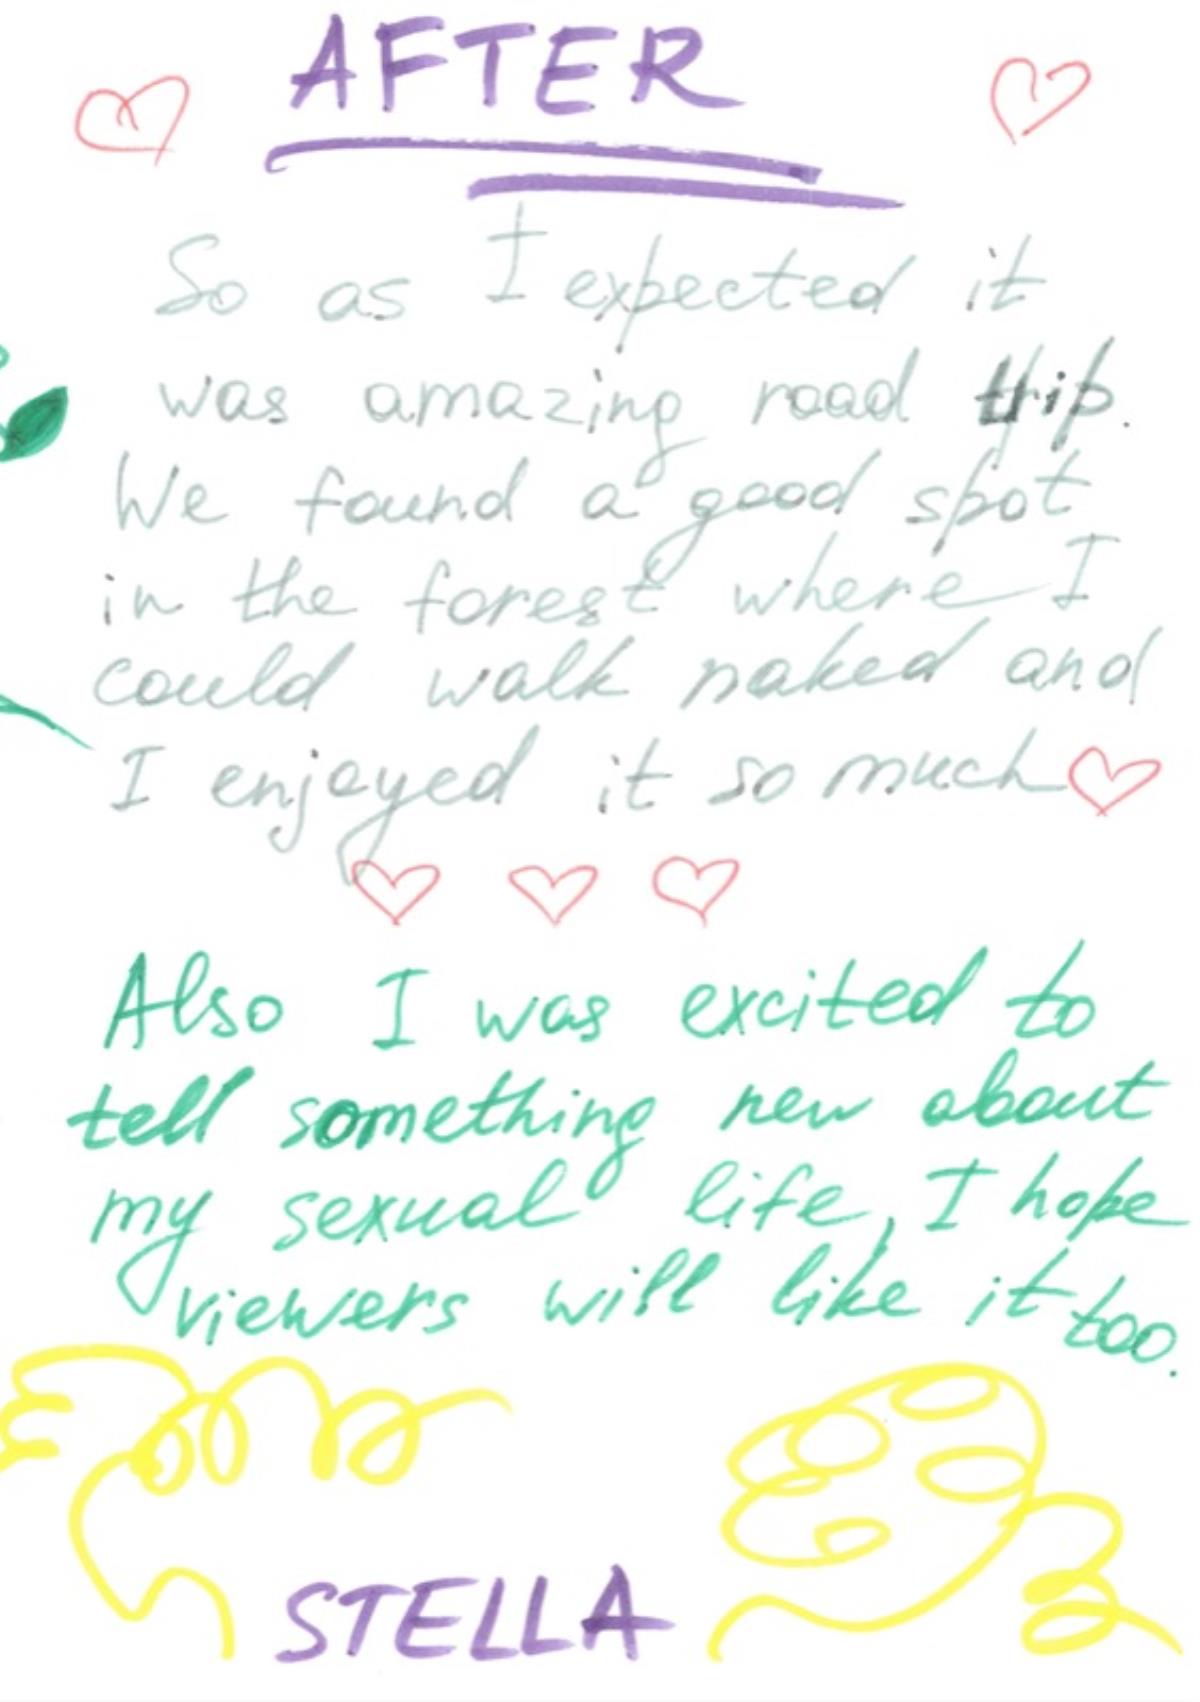 AFTER
So as I expected it
was amazing road trip.
We found a good spot
in the forest where I
could walk naked and
I enjoyed it so much
Also I was excited to
tell something new about
my sexual life, I hope
viewers will like it too.
STELLA